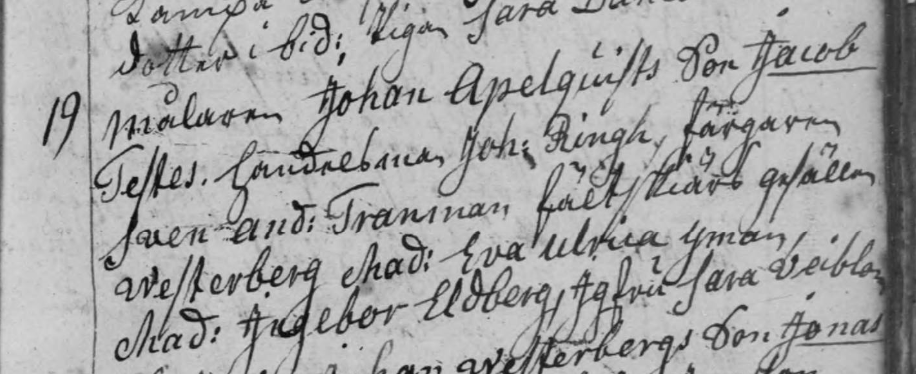 dotter i bid: Pigan Sara
19 Målaren Johan Apelquists Son Jacob
Testes. Handelsman Joh: Ringh, färgaren
Sven And: Tranman fältskiärs gesällen
Westerberg Mad: Eva Ulrica Yman,
Mad: Ingebor Eldberg, Jgfru Sara
Westerbergs Son Jonas